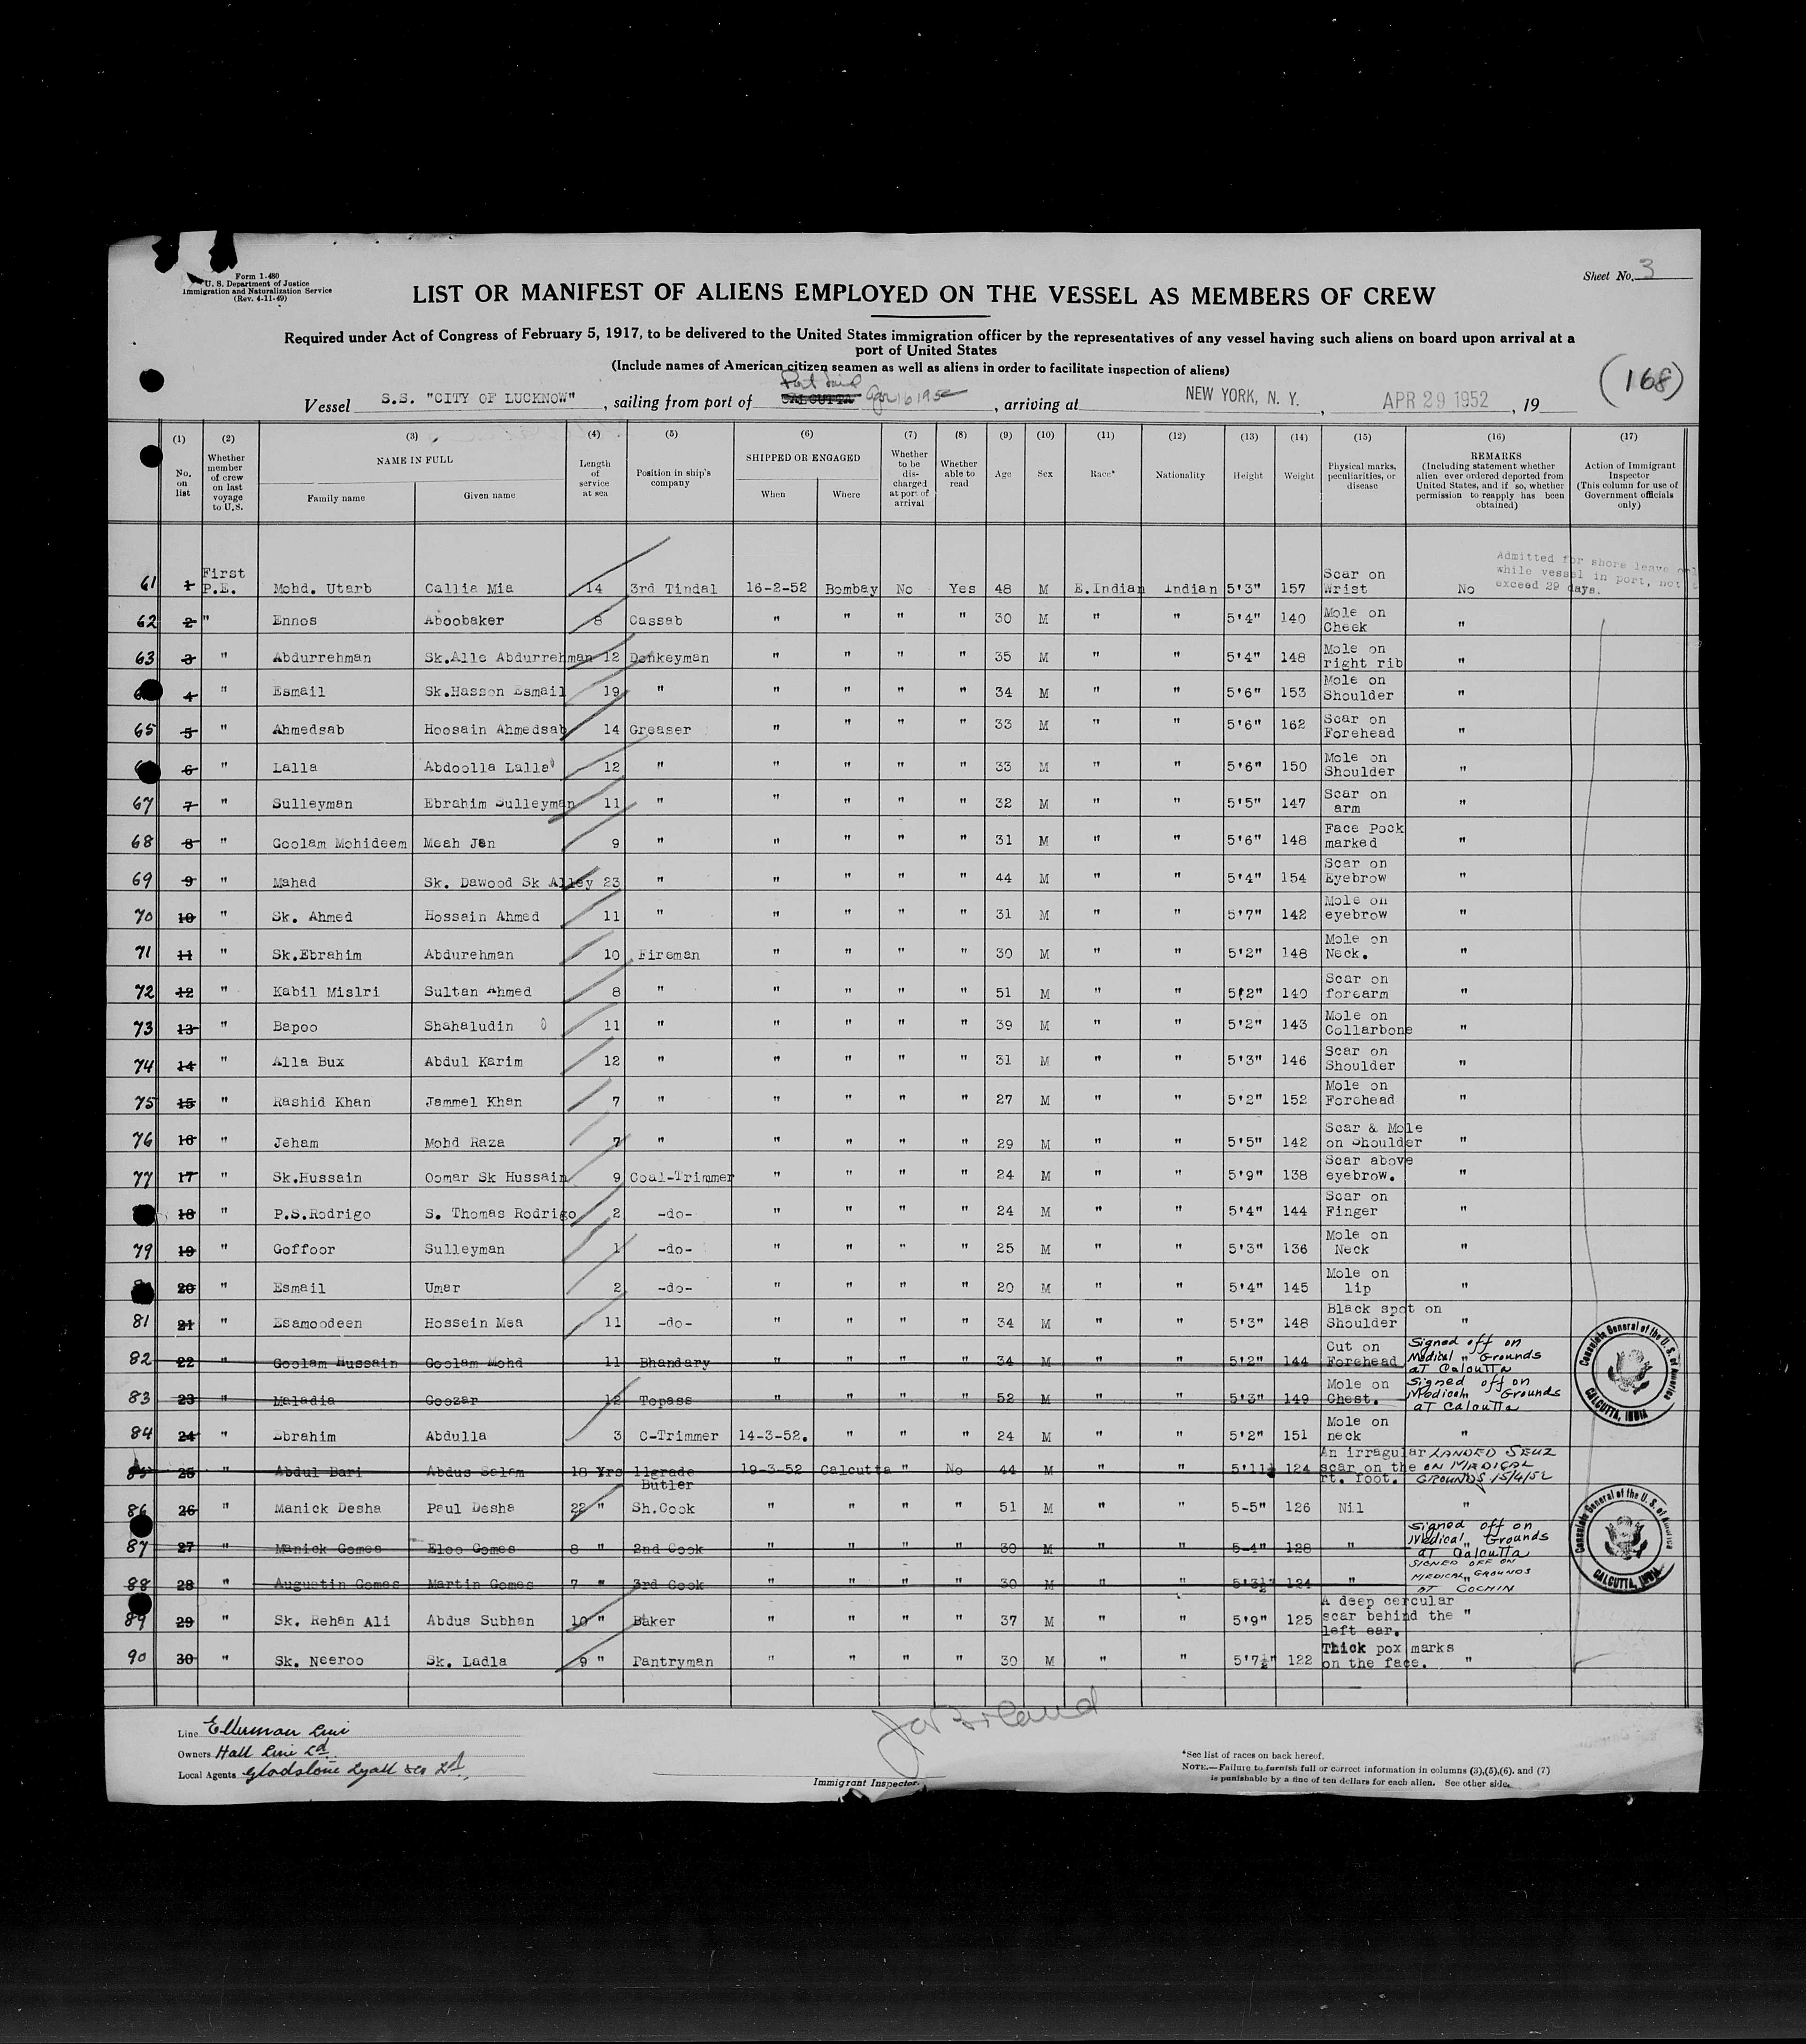 Form 1-480
U. S. Department of Justice
Immigration and Naturalization Service
(Rev. 4-11-49)
Sheet No. 3
LIST OR MANIFEST OF ALIENS EMPLOYED ON THE VESSEL AS MEMBERS OF CREW
Required under Act of Congress of February 5, 1917, to be delivered to the United States immigration officer by the representatives of any vessel having such aliens on board upon arrival at a
port of United States
(Include names of American citizen seamen as well as aliens in order to facilitate inspection of aliens)
(168)
Port Said
Vessel S.S. "CITY OF LUCKNOW" , sailing from port of CALCUTTA Apr 16 1952 , arriving at NEW YORK, N. Y. , APR 29 1952 , 19
(1) (2) (3) (4) (5) (6) (7) (8) (9) (10) (11) (12) (13) (14) (15) (16) (17)
No. on list Whether member of crew on last voyage to U.S. NAME IN FULL Family name Given name Length of service at sea Position in ship's company SHIPPED OR ENGAGED When Where Whether to be discharged at port of arrival Whether able to read Age Sex Race* Nationality Height Weight Physical marks, peculiarities, or disease REMARKS (Including statement whether alien ever ordered deported from United States, and if so, whether permission to reapply has been obtained) Action of Immigrant Inspector (This column for use of Government officials only)
Admitted for shore leave
while vessel in port, not
exceed 29 days.
61 1 First P.E. Mohd. Utarb Callia Mia 14 3rd Tindal 16-2-52 Bombay No Yes 48 M E.Indian Indian 5'3" 157 Scar on Wrist No
62 2 " Ennos Aboobaker 8 Cassab " " " " 30 M " " 5'4" 140 Mole on Cheek "
63 3 " Abdurrehman Sk.Alle Abdurrehman 12 Donkeyman " " " " 35 M " " 5'4" 148 Mole on right rib "
4 " Esmail Sk.Hasson Esmail 19 " " " " " 34 M " " 5'6" 153 Mole on Shoulder "
65 5 " Ahmedsab Hoosain Ahmedsab 14 Greaser " " " " 33 M " " 5'6" 162 Scar on Forehead "
6 " Lalla Abdoolla Lalla 12 " " " " " 33 M " " 5'6" 150 Mole on Shoulder "
67 7 " Sulleyman Ebrahim Sulleyman 11 " " " " " 32 M " " 5'5" 147 Scar on arm "
68 8 " Goolam Mohideem Meah Jan 9 " " " " " 31 M " " 5'6" 148 Face Pock marked "
69 9 " Mahad Sk. Dawood Sk Alley 23 " " " " " 44 M " " 5'4" 154 Scar on Eyebrow "
70 10 " Sk. Ahmed Hossain Ahmed 11 " " " " " 31 M " " 5'7" 142 Mole on eyebrow "
71 11 " Sk.Ebrahim Abdurehman 10 Fireman " " " " 30 M " " 5'2" 148 Mole on Neck. "
72 12 " Kabil Mislri Sultan Ahmed 8 " " " " " 51 M " " 5'2" 140 Scar on forearm "
73 13 " Bapoo Shahaludin 11 " " " " " 39 M " " 5'2" 143 Mole on Collarbone "
74 14 " Alla Bux Abdul Karim 12 " " " " " 31 M " " 5'3" 146 Scar on Shoulder "
75 15 " Rashid Khan Jammel Khan 7 " " " " " 27 M " " 5'2" 152 Mole on Forehead "
76 16 " Jeham Mohd Raza 7 " " " " " 29 M " " 5'5" 142 Scar & Mole on Shoulder "
77 17 " Sk.Hussain Oomar Sk Hussain 9 Coal-Trimmer " " " " 24 M " " 5'9" 138 Scar above eyebrow. "
18 " P.S.Rodrigo S. Thomas Rodrigo 2 -do- " " " " 24 M " " 5'4" 144 Scar on Finger "
79 19 " Goffoor Sulleyman 1 -do- " " " " 25 M " " 5'3" 136 Mole on Neck "
20 " Esmail Umar 2 -do- " " " " 20 M " " 5'4" 145 Mole on lip "
81 21 " Esamoodeen Hossein Mea 11 -do- " " " " 34 M " " 5'3" 148 Black spot on Shoulder "
82 22 " Goolam Hussain Goolam Mohd 11 Bhandary " " " " 34 M " " 5'2" 144 Cut on Forehead " Signed off on Medical Grounds at Calcutta
83 23 " Maladia Goozar 12 Topass " " " " 52 M " " 5'3" 149 Mole on Chest. Signed off on Medical Grounds at Calcutta
84 24 " Ebrahim Abdulla 3 C-Trimmer 14-3-52. " " " 24 M " " 5'2" 151 Mole on neck "
85 25 " Abdul Bari Abdus Salam 18 Yrs 11grade Butler 19-3-52 Calcutta " No 44 M " " 5'11½ 124 An irragular scar on the rt. foot. LANDED SEUZ ON MEDICAL GROUNDS 15/4/52
86 26 " Manick Desha Paul Desha 22 " Sh.Cook " " " " 51 M " " 5-5" 126 Nil "
87 27 " Manick Gomes Eloo Gomes 8 " 2nd Cook " " " " 30 M " " 5-4" 128 " " Signed off on Medical Grounds at Calcutta
88 28 " Augustin Gomes Martin Gomes 7 " 3rd Cook " " " " 30 M " " 5'3½" 124 " " SIGNED OFF ON MEDICAL GROUNDS AT COCHIN
89 29 " Sk. Rehan Ali Abdus Subhan 10 " Baker " " " " 37 M " " 5'9" 125 A deep cercular scar behind the left ear. "
90 30 " Sk. Neeroo Sk. Ladla 9 " Pantryman " " " " 30 M " " 5'7½" 122 Thick pox marks on the face. "
Consulate General of the U. S. of America
CALCUTTA, INDIA
Consulate General of the U. S. of America
CALCUTTA, INDIA
Line Ellerman Line
Owners Hall Line Ld.
Local Agents Gladstone Lyall & Co Ld.
Immigrant Inspector.
*See list of races on back hereof.
NOTE.—Failure to furnish full or correct information in columns (3),(5),(6), and (7)
is punishable by a fine of ten dollars for each alien. See other side.